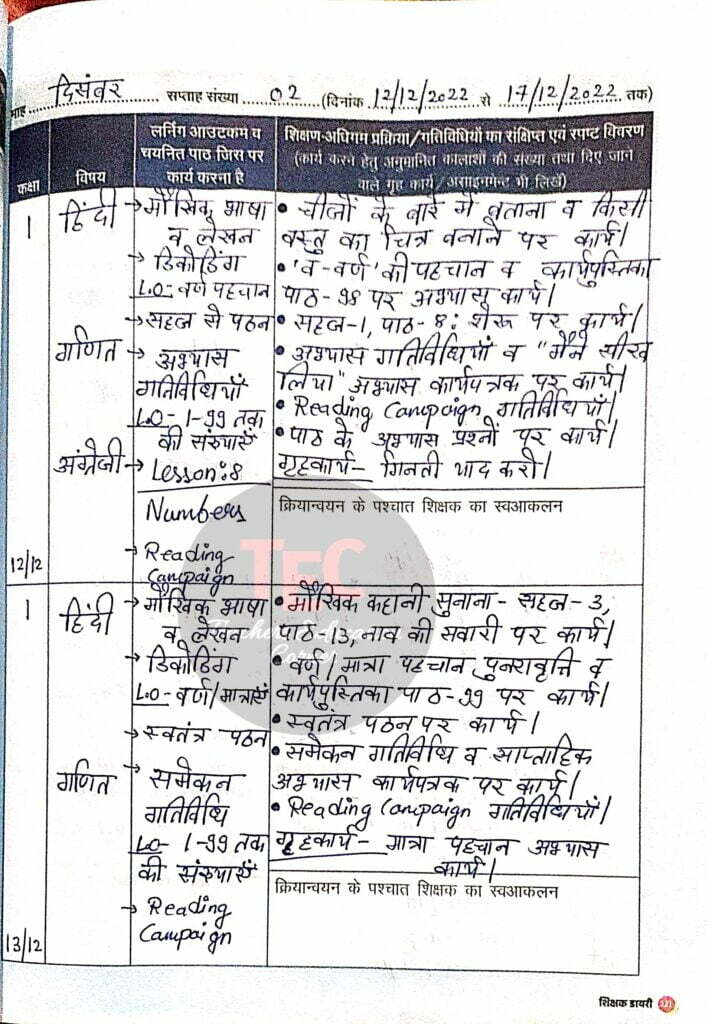 माह दिसंबर सप्ताह संख्या 02 (दिनांक 12/12/2022 से 17/12/2022 तक)
कक्षा
विषय
लर्निंग आउटकम व
चयनित पाठ जिस पर
कार्य करना है
शिक्षण-अधिगम प्रक्रिया/गतिविधियों का संक्षिप्त एवं स्पष्ट विवरण
(कार्य करने हेतु अनुमानित कालांशों की संख्या तथा दिए जाने
वाले गृह कार्य/असाइनमेन्ट भी लिखें)
1
हिंदी
→ मौखिक भाषा
व लेखन
→ डिकोडिंग
L.O- वर्ण पहचान
→ सहज से पठन
गणित
→ अभ्यास
गतिविधियाँ
L.O- 1-99 तक
की संख्याएँ
अंग्रेजी
→ Lesson:8
Numbers
→ Reading
Campaign
• चीजों के बारे में बताना व किसी
वस्तु का चित्र बनाने पर कार्य।
• 'व-वर्ण' की पहचान व कार्यपुस्तिका
पाठ-98 पर अभ्यास कार्य।
• सहज-1, पाठ-8: शेरू पर कार्य।
• अभ्यास गतिविधियाँ व "मैंने सीख
लिया" अभ्यास कार्यपत्रक पर कार्य।
• Reading Campaign गतिविधियाँ।
• पाठ के अभ्यास प्रश्नों पर कार्य।
गृहकार्य- गिनती याद करो।
क्रियान्वयन के पश्चात शिक्षक का स्वआकलन
12/12
1
हिंदी
→ मौखिक भाषा
व लेखन
→ डिकोडिंग
L.O- वर्ण/मात्राएँ
→ स्वतंत्र पठन
गणित
→ समेकन
गतिविधि
L.O- 1-99 तक
की संख्याएँ
→ Reading
Campaign
• मौखिक कहानी सुनाना- सहज-3,
पाठ-13, नाव की सवारी पर कार्य।
• वर्ण/मात्रा पहचान पुनरावृत्ति व
कार्यपुस्तिका पाठ-99 पर कार्य।
• स्वतंत्र पठन पर कार्य।
• समेकन गतिविधि व साप्ताहिक
अभ्यास कार्यपत्रक पर कार्य।
• Reading Campaign गतिविधियाँ।
गृहकार्य- मात्रा पहचान अभ्यास
कार्य।
क्रियान्वयन के पश्चात शिक्षक का स्वआकलन
13/12
TEC
Corner
शिक्षक डायरी